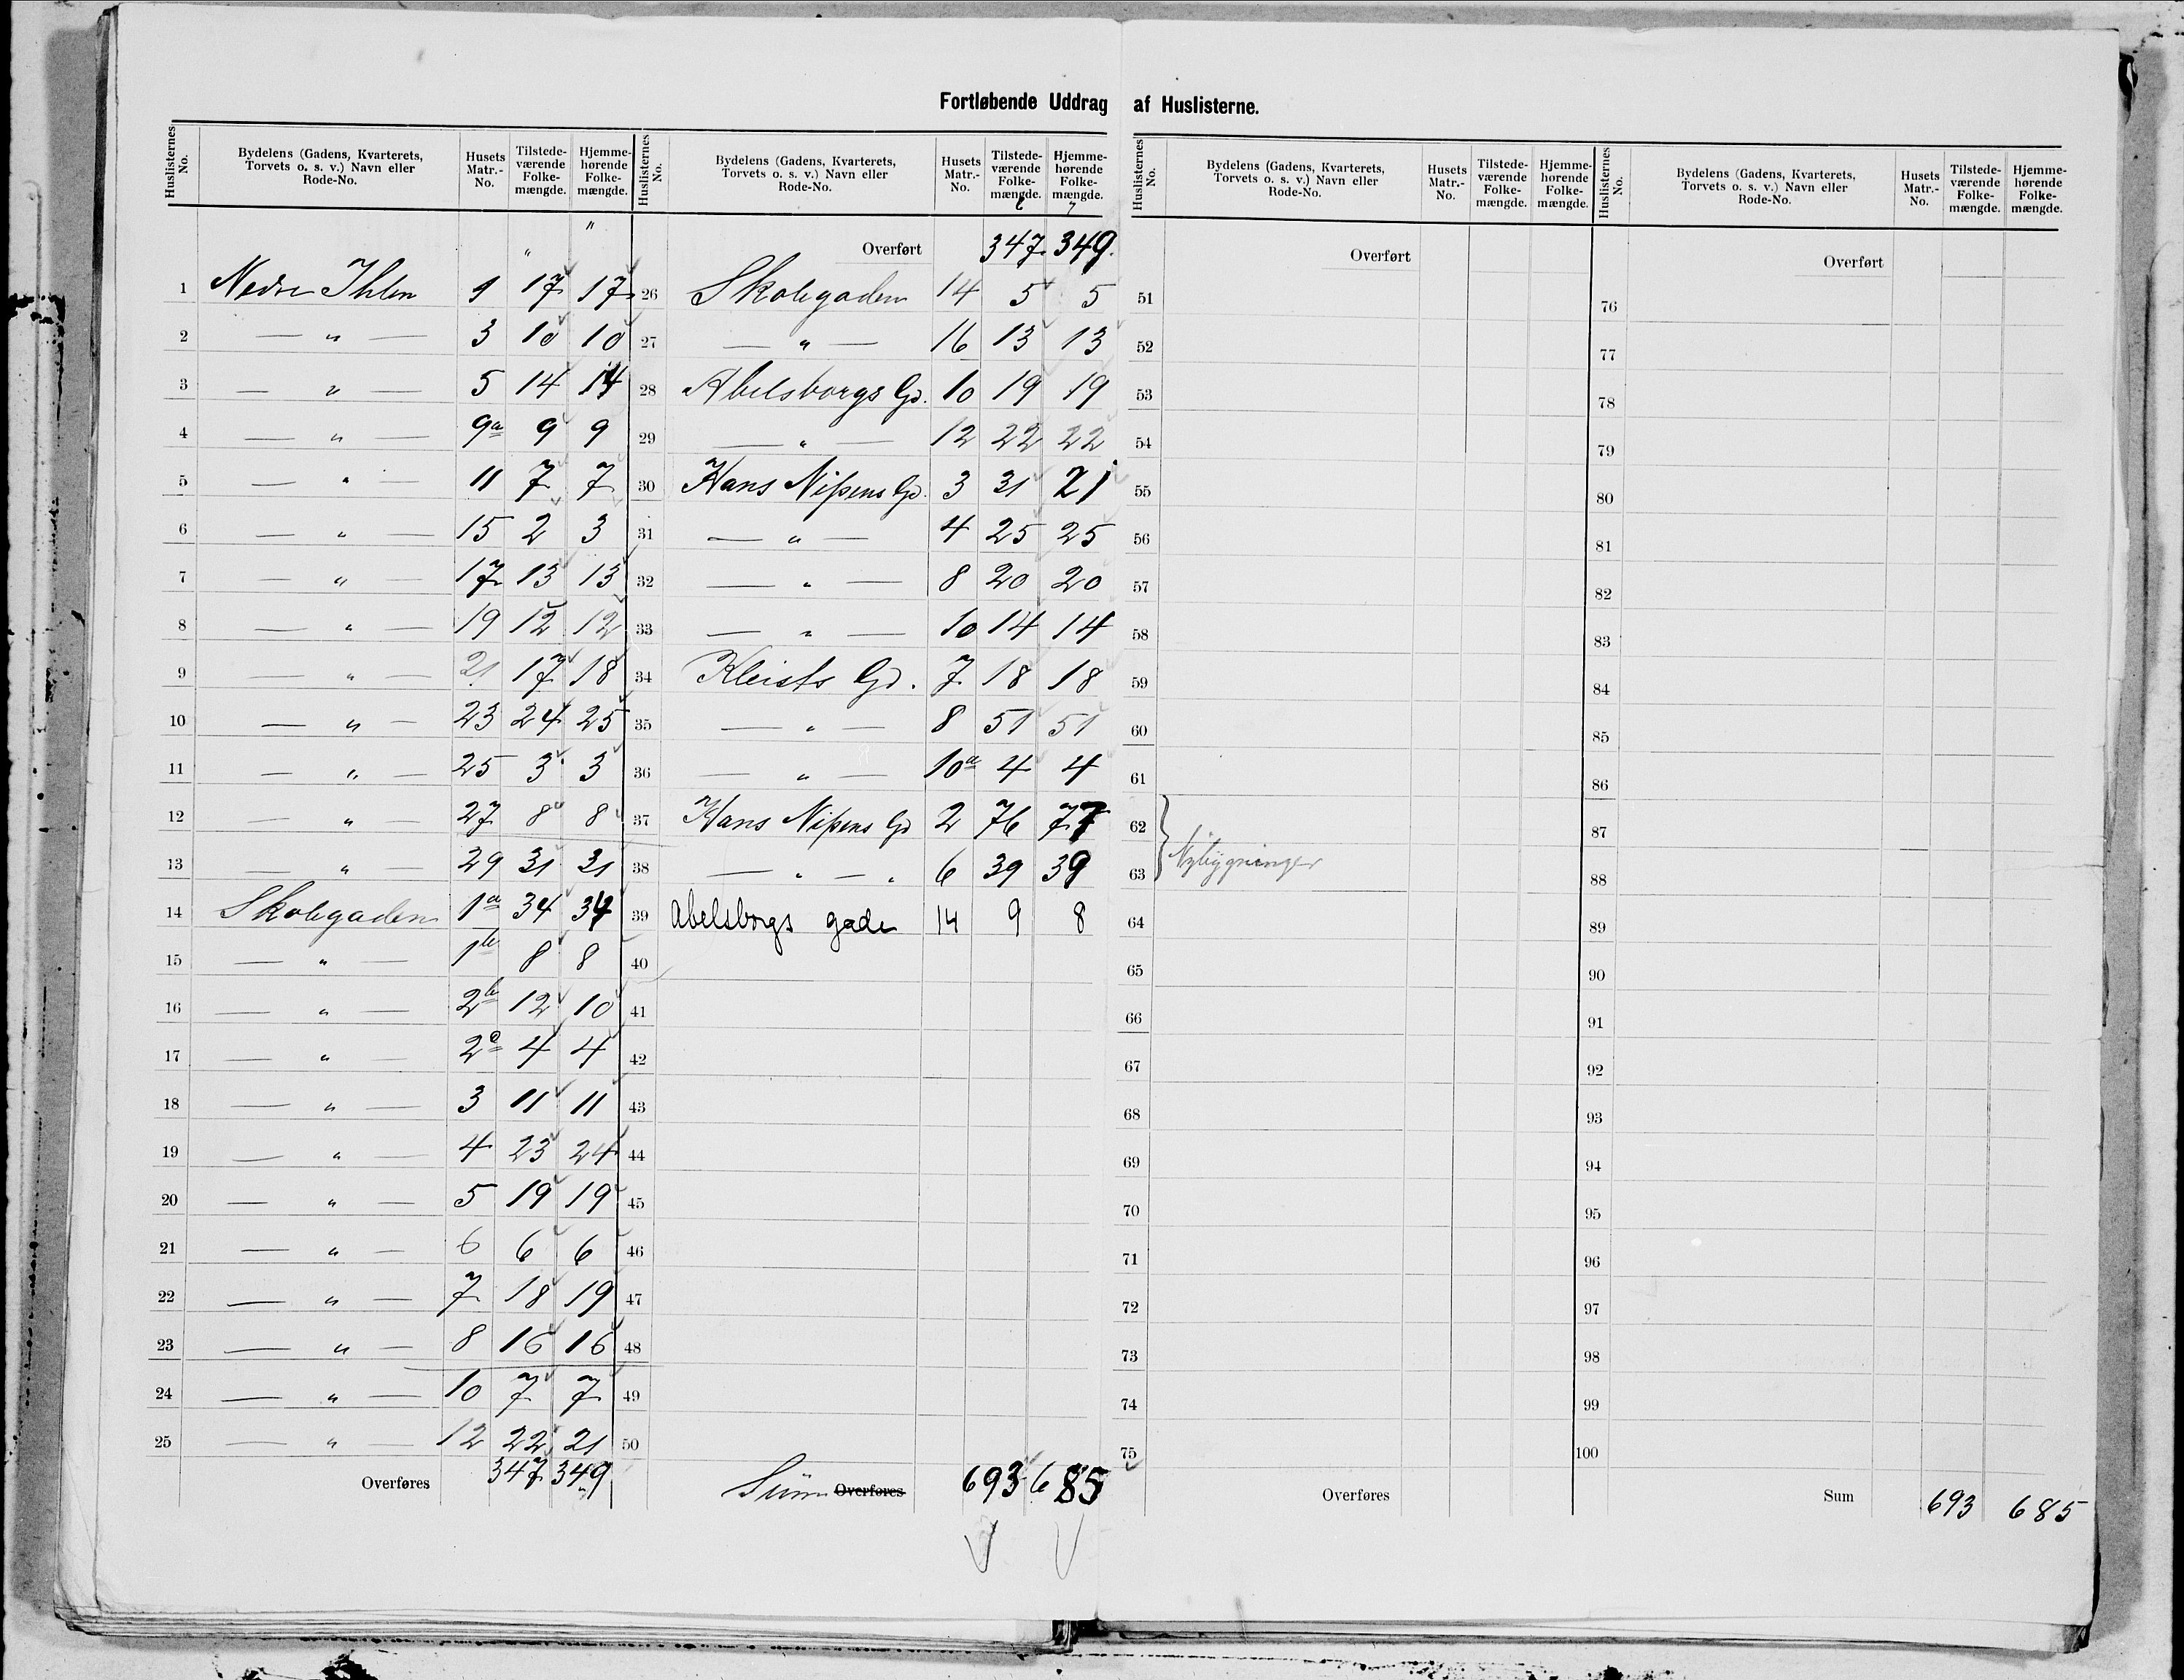 Fortløbende Uddrag af Huslisterne.
Huslisternes No. | Bydelens (Gadens, Kvarterets, Torvets o. s. v.) Navn eller Rode-No. | Husets Matr.-No. | Tilstedeværende Folkemængde. | Hjemmehørende Folkemængde.
1 Nedre Ihlen 1 17 17
2 — " — 3 10 10
3 — " — 5 14 14
4 — " — 9a 9 9
5 — " — 11 7 7
6 — " — 15 2 3
7 — " — 17 13 13
8 — " — 19 12 12
9 — " — 21 17 18
10 — " — 23 24 25
11 — " — 25 3 3
12 — " — 27 8 8
13 — " — 29 31 31
14 Skolegaden 1a 34 34
15 — " — 1b 8 8
16 — " — 2b 12 10
17 — " — 2c 4 4
18 — " — 3 11 11
19 — " — 4 23 24
20 — " — 5 19 19
21 — " — 6 6 6
22 — " — 7 18 19
23 — " — 8 16 16
24 — " — 10 7 7
25 — " — 12 22 21
Overføres 347 349
Huslisternes No. | Bydelens (Gadens, Kvarterets, Torvets o. s. v.) Navn eller Rode-No. | Husets Matr.-No. | Tilstedeværende Folkemængde. | Hjemmehørende Folkemængde.
6 7
Overført 347 349.
26 Skolegaden 14 5 5
27 — " — 16 13 13
28 Abelsborgs Gd. 10 19 19
29 — " — 12 22 22
30 Hans Nissens Gd. 3 31 21
31 — " — 4 25 25
32 — " — 8 20 20
33 — " — 10 14 14
34 Kleists Gd. 7 18 18
35 — " — 8 51 51
36 — " — 10a 4 4
37 Hans Nissens Gd 2 76 77
38 — " — " 6 39 39
39 Abelsborgs gade 14 9 8
40
41
42
43
44
45
46
47
48
49
50
Sum Overføres 693 685
Huslisternes No. | Bydelens (Gadens, Kvarterets, Torvets o. s. v.) Navn eller Rode-No. | Husets Matr.-No. | Tilstedeværende Folkemængde. | Hjemmehørende Folkemængde.
Overført
51
52
53
54
55
56
57
58
59
60
61
62
63 Nybygninger
64
65
66
67
68
69
70
71
72
73
74
75
Overføres
Huslisternes No. | Bydelens (Gadens, Kvarterets, Torvets o. s. v.) Navn eller Rode-No. | Husets Matr.-No. | Tilstedeværende Folkemængde. | Hjemmehørende Folkemængde.
Overført
76
77
78
79
80
81
82
83
84
85
86
87
88
89
90
91
92
93
94
95
96
97
98
99
100
Sum 693 685